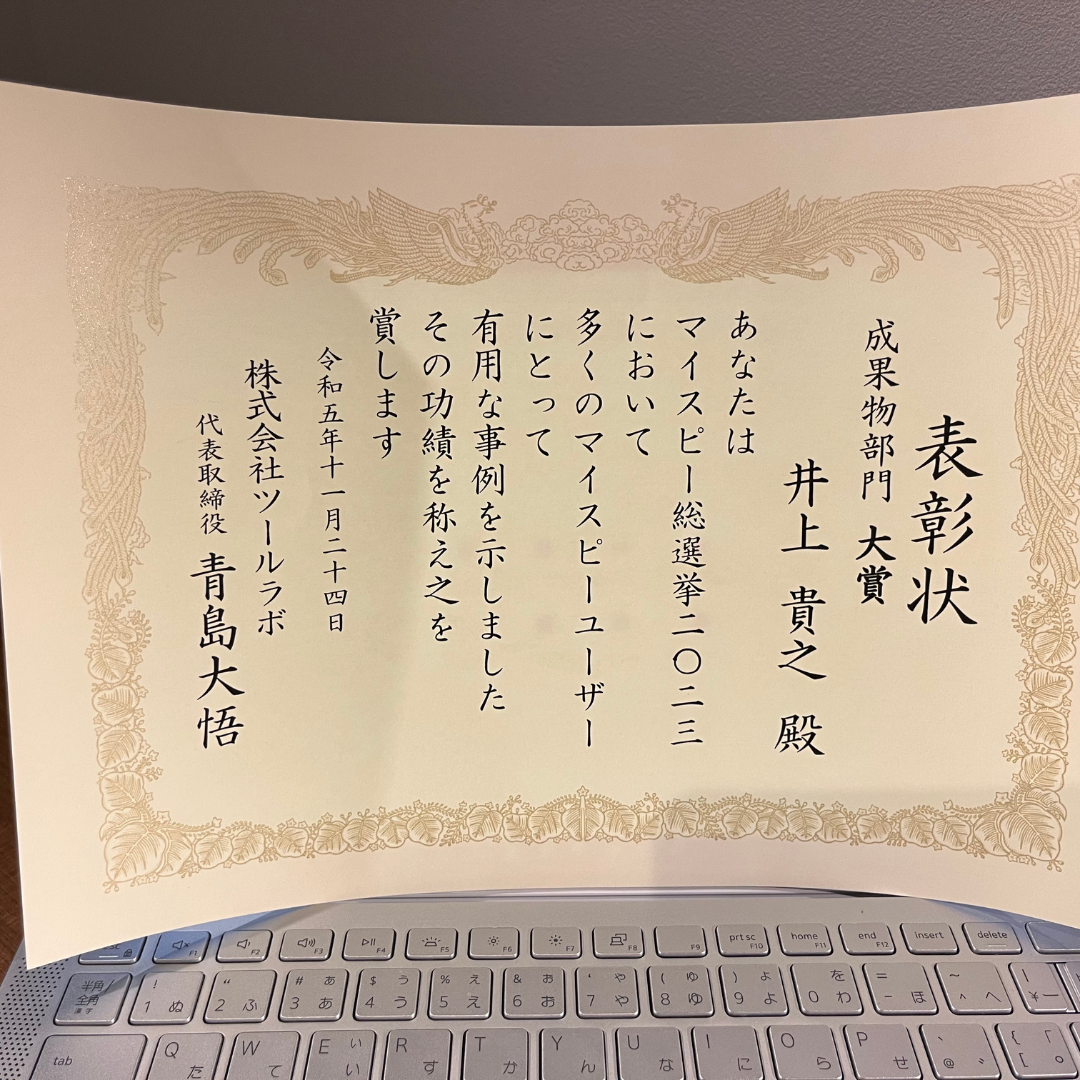 表彰状
成果物部門 大賞
井上 貴之 殿
あなたは
マイスピー総選挙二〇二三
において
多くのマイスピーユーザー
にとって
有用な事例を示しました
その功績を称え之を
賞します
令和五年十一月二十四日
株式会社ツールラボ
代表取締役 青島大悟
F1
F2
F3
F4
F5
F6
F7
F8
F9
prt sc F10
home F11
end F12
insert
delete
半角/ 全角 漢字
! 1 ぬ
" 2 ふ
# あ 3 あ
$ う 4 う
% え 5 え
& お 6 お
' や 7 や
( ゆ 8 ゆ
) よ 9 よ
を 0 わ
= - ほ
~ ^ へ
| ¥ ー
tab
Q た
W て
E い い
R す
T か
Y ん
U な
I に
O ら
P せ
` @ ゛
{ 「 [ ゜